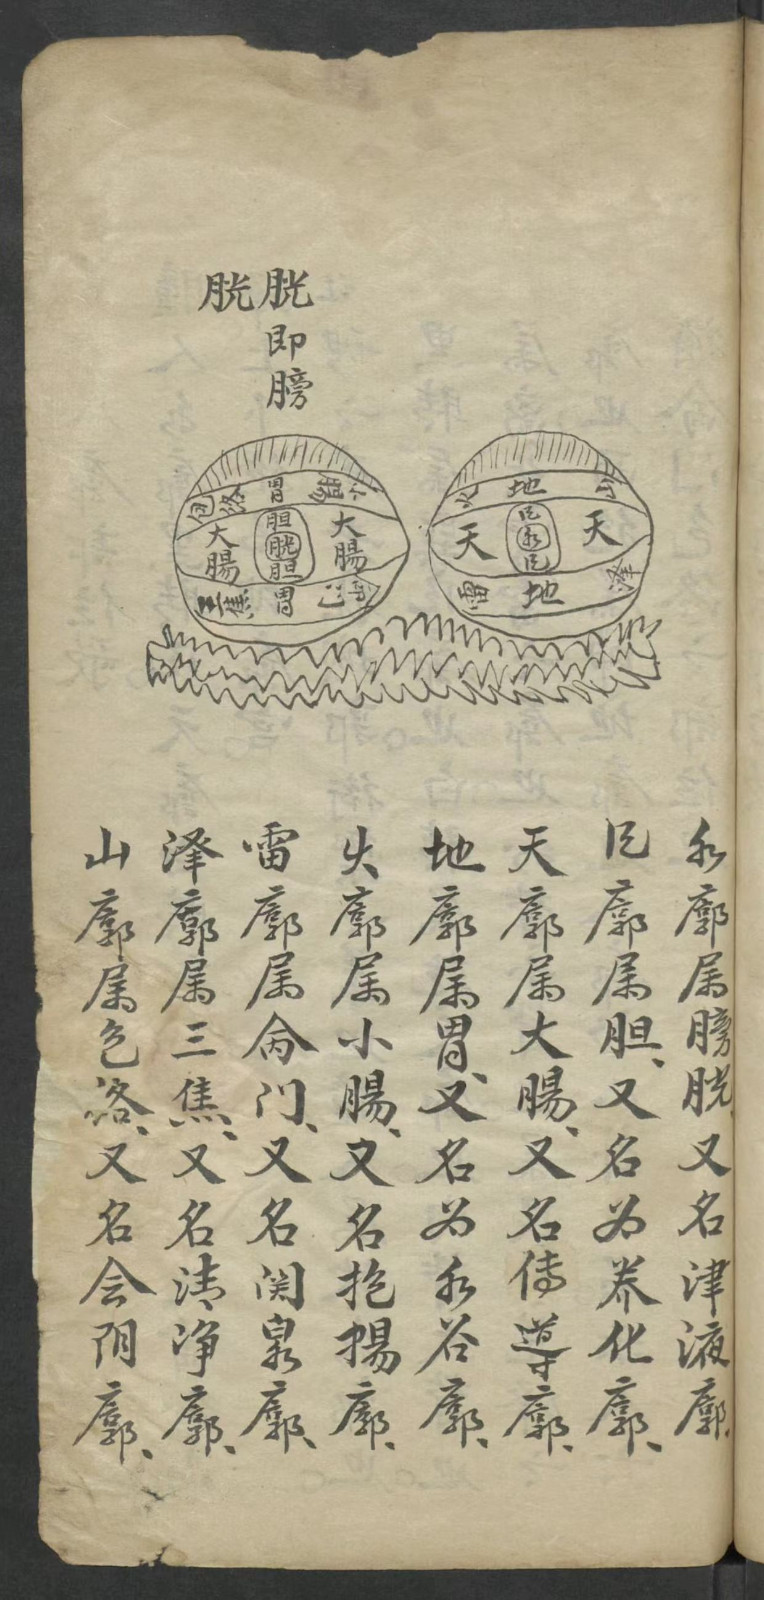 胱即膀
胱
火 地 山
天 风水风 天
雷 地 泽
包络 胃 小腸
大腸 胆胱胆 大腸
三焦 胃
水廓属膀胱、又名津液廓、
风廓属胆、又名为养化廓、
天廓属大腸、又名传導廓、
地廓属胃、又名为水谷廓、
火廓属小腸、又名抱揚廓、
雷廓属命门、又名関泉廓、
泽廓属三焦、又名清净廓、
山廓属包络、又名会阴廓、